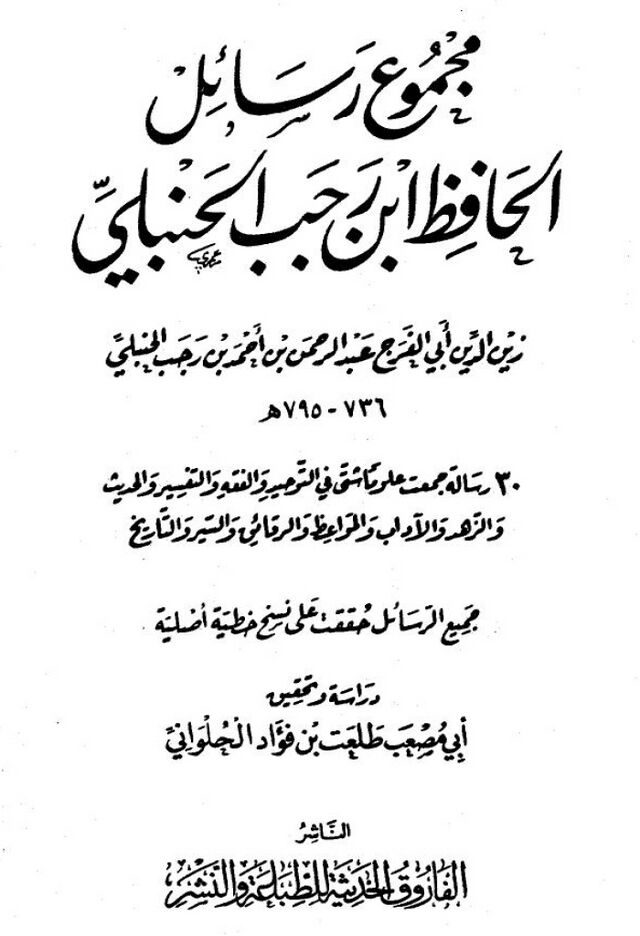 مجموع رسائل
الحافظ ابن رجب الحنبلي
زين الدين أبي الفرج عبد الرحمن بن أحمد بن رجب الحنبلي
٧٣٦ - ٧٩٥هـ
٣٠ رسالة جمعت علومًا شتى في التوحيد والفقه والتفسير والحديث
والزهد والآداب والمواعظ والرقائق والسير والتاريخ
جميع الرسائل حققت على نسخ خطية أصلية
دراسة وتحقيق
أبي مصعب طلعت بن فؤاد الحلواني
الناشر
الفاروق الحديثة للطباعة والنشر